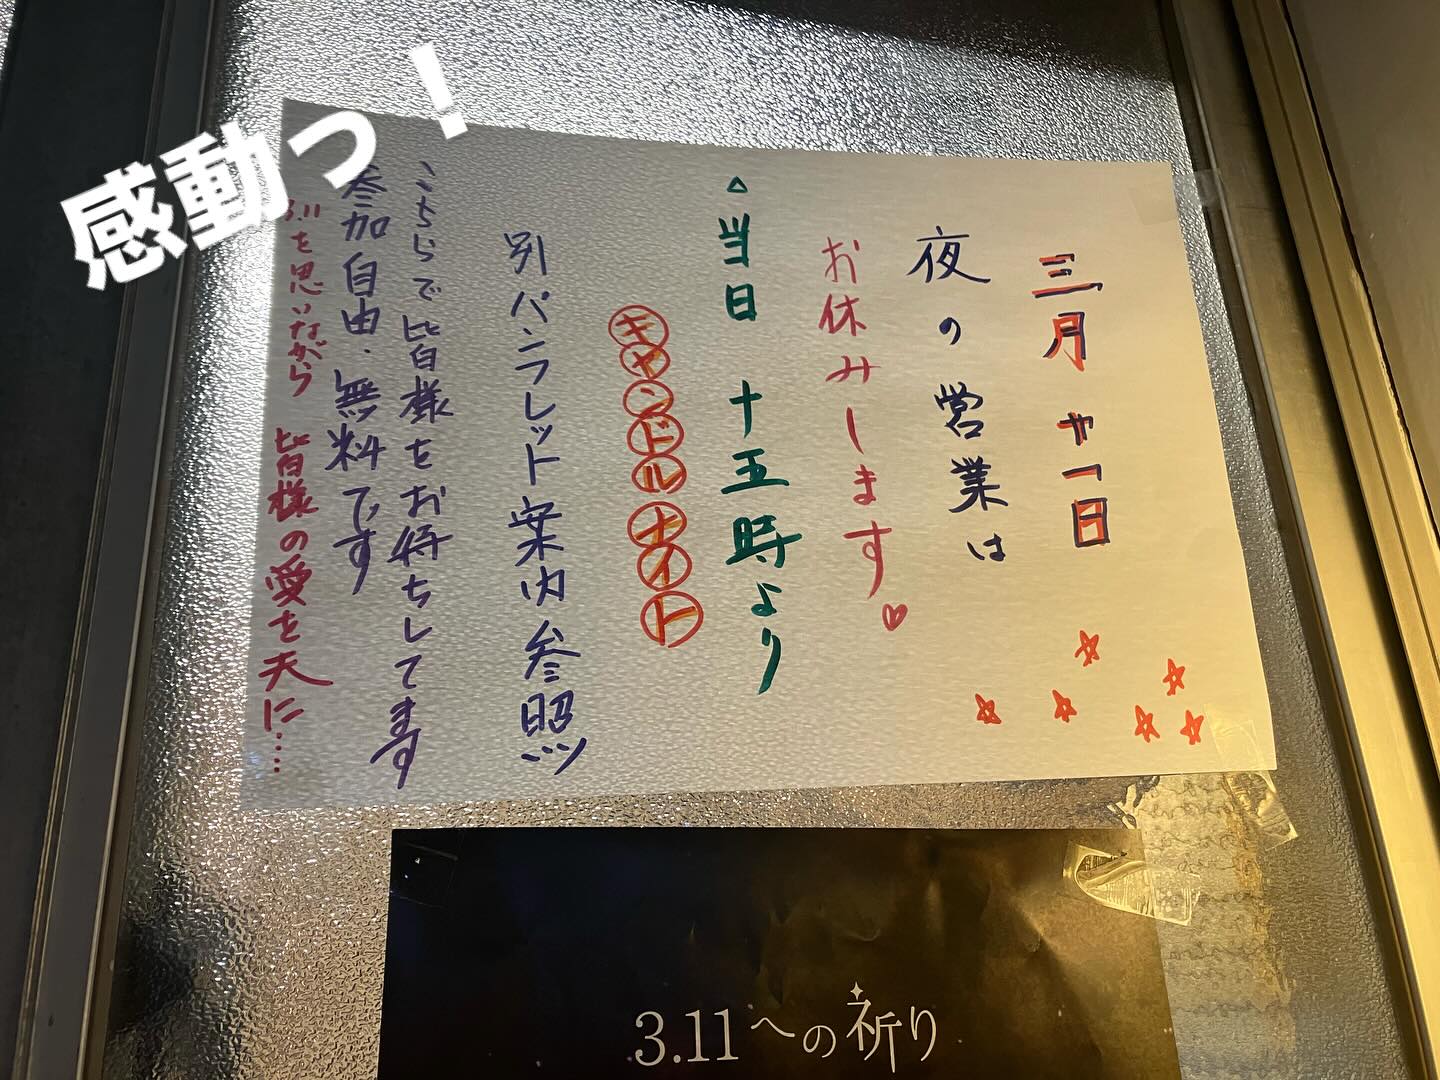 感動っ！
三月十一日
夜の営業は
お休みします♡
△当日 十五時より
キャンドルナイト
別パンフレット案内参照
こちらで皆様をお待ちしてます
参加自由・無料です
3.11を思いながら 皆様の愛を天に…
3.11への祈り